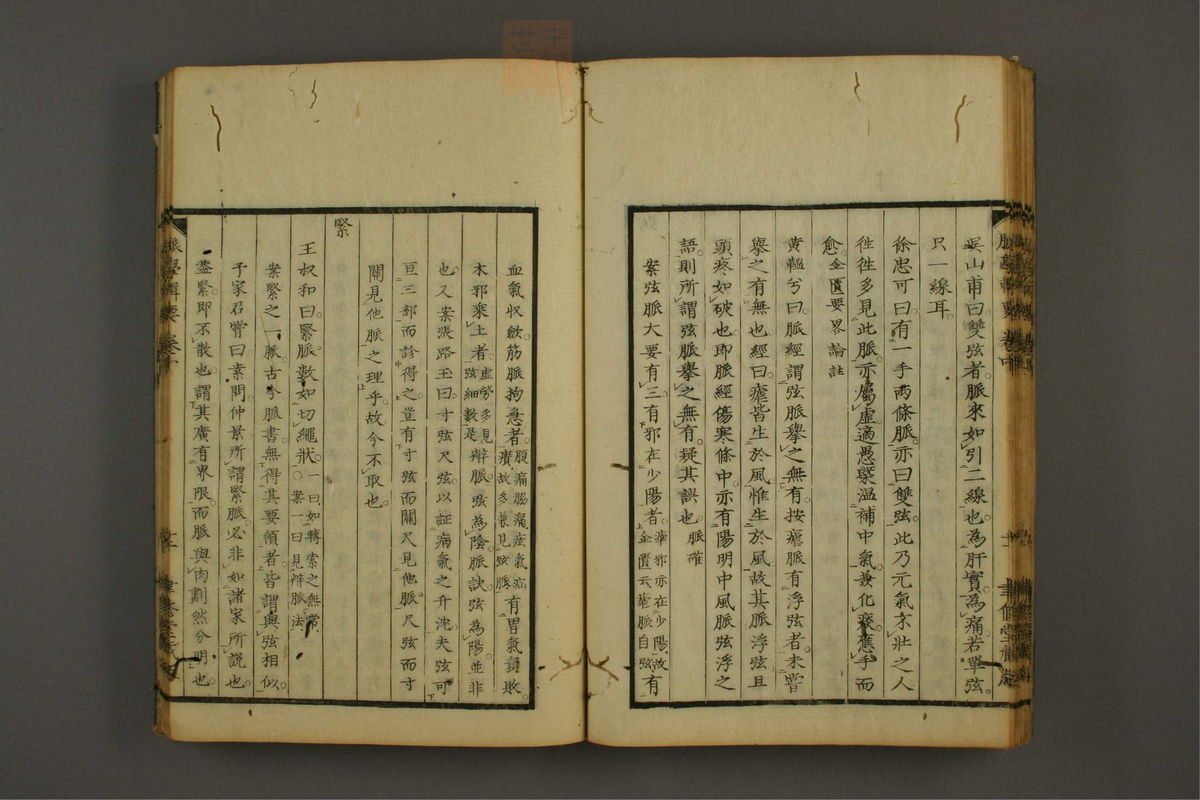 吳山甫曰雙弦者脈來如引二線也為肝實為痛若單弦
只一線耳
徐忠可曰有一手兩條脈亦曰雙弦此乃元氣不壯之人
徃徃多見此脈亦屬虛適愚槩溫補中氣兼化痰應手而
愈金匱要畧論註
黃韞兮曰脈經謂弦脈舉之無有按瘧脈有浮弦者未嘗
舉之有無也經曰瘧皆生於風惟生於風故其脈浮弦且
頭疼如破也即脈經傷寒條中亦有陽明中風脈弦浮之
語則所謂弦脈擧之無有疑其誤也脈確
案弦脈大要有三有邪在少陽者瘧邪亦在少陽故金匱云瘧脈自弦有
血氣収斂筋脈拘急者腹痛脇痛痃氣疝㿉故多兼見弦脈有胃氣衰敗
木邪乘土者虛勞多見弦細數是辨脈弦為陰脈訣弦為陽並非
也又案張路玉曰寸弦尺弦以証病氣之升沈夫弦可
亘三部而診得之豈有寸弦而關尺見他脈尺弦而寸
關見他脈之理乎故今不取也
緊
王叔和曰緊脈數如切繩狀一曰如轉索之無常○案一曰見辨脈法
案緊之一脈古今脈書無得其要領者皆謂與弦相似
予家君嘗曰素問仲景所謂緊脈必非如諸家所說也
蓋緊即不散也謂其廣有界限而脈與肉劃然分明也
脈學輯要 卷中
聿修堂藏版